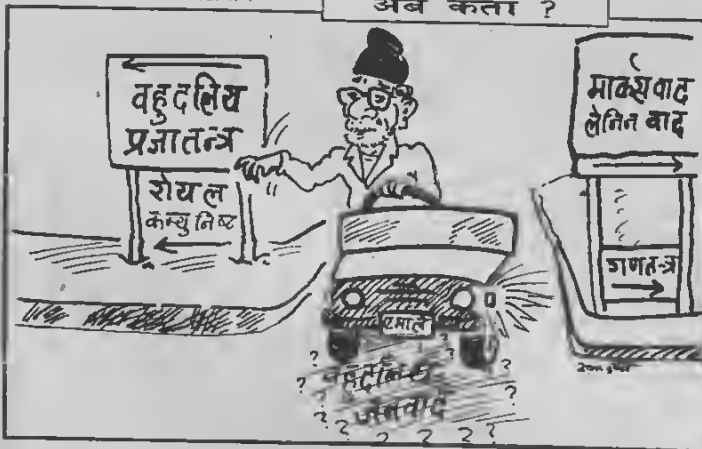 अब कता ?
वहुदलिय
प्रजातन्त्र
रोयल
कम्युनिष्ट
मार्क्सवाद
लेनिन वाद
गणतन्त्र
एमाले
? ?
? वहुदलिय ?
? जनवाद ?
? ? ? ? ?